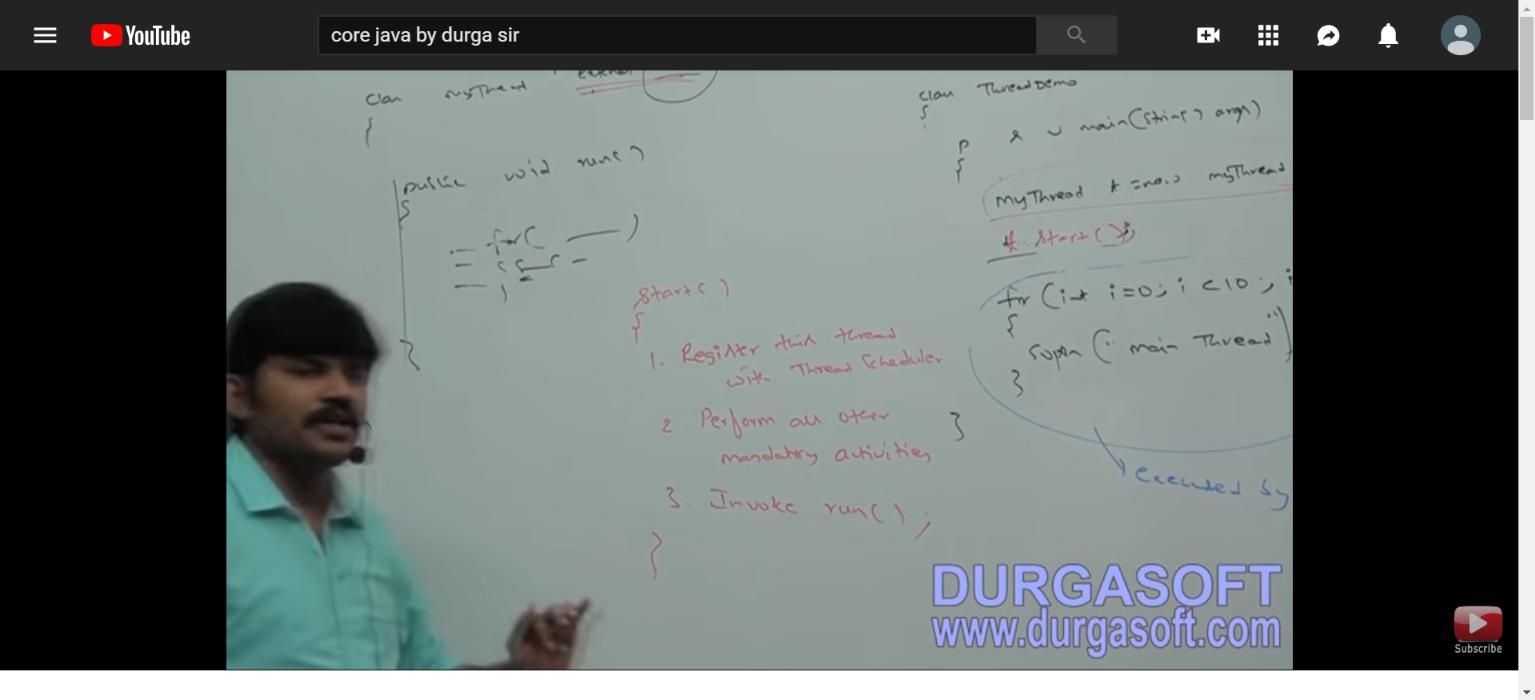 YouTube
core java by durga sir
class myThread extends
{
public void run()
{
for( )
}
start()
{
1. Register this thread
with Thread Scheduler
2. Perform all other
mandatory activities
3. Invoke run();
}
class ThreadDemo
{
p s v main(String[] args)
{
myThread t = new myThread
t. start();
for (int i=0; i <10; i
{
sopln ("main Thread")
}
}
executed by
DURGASOFT
www.durgasoft.com
Subscribe